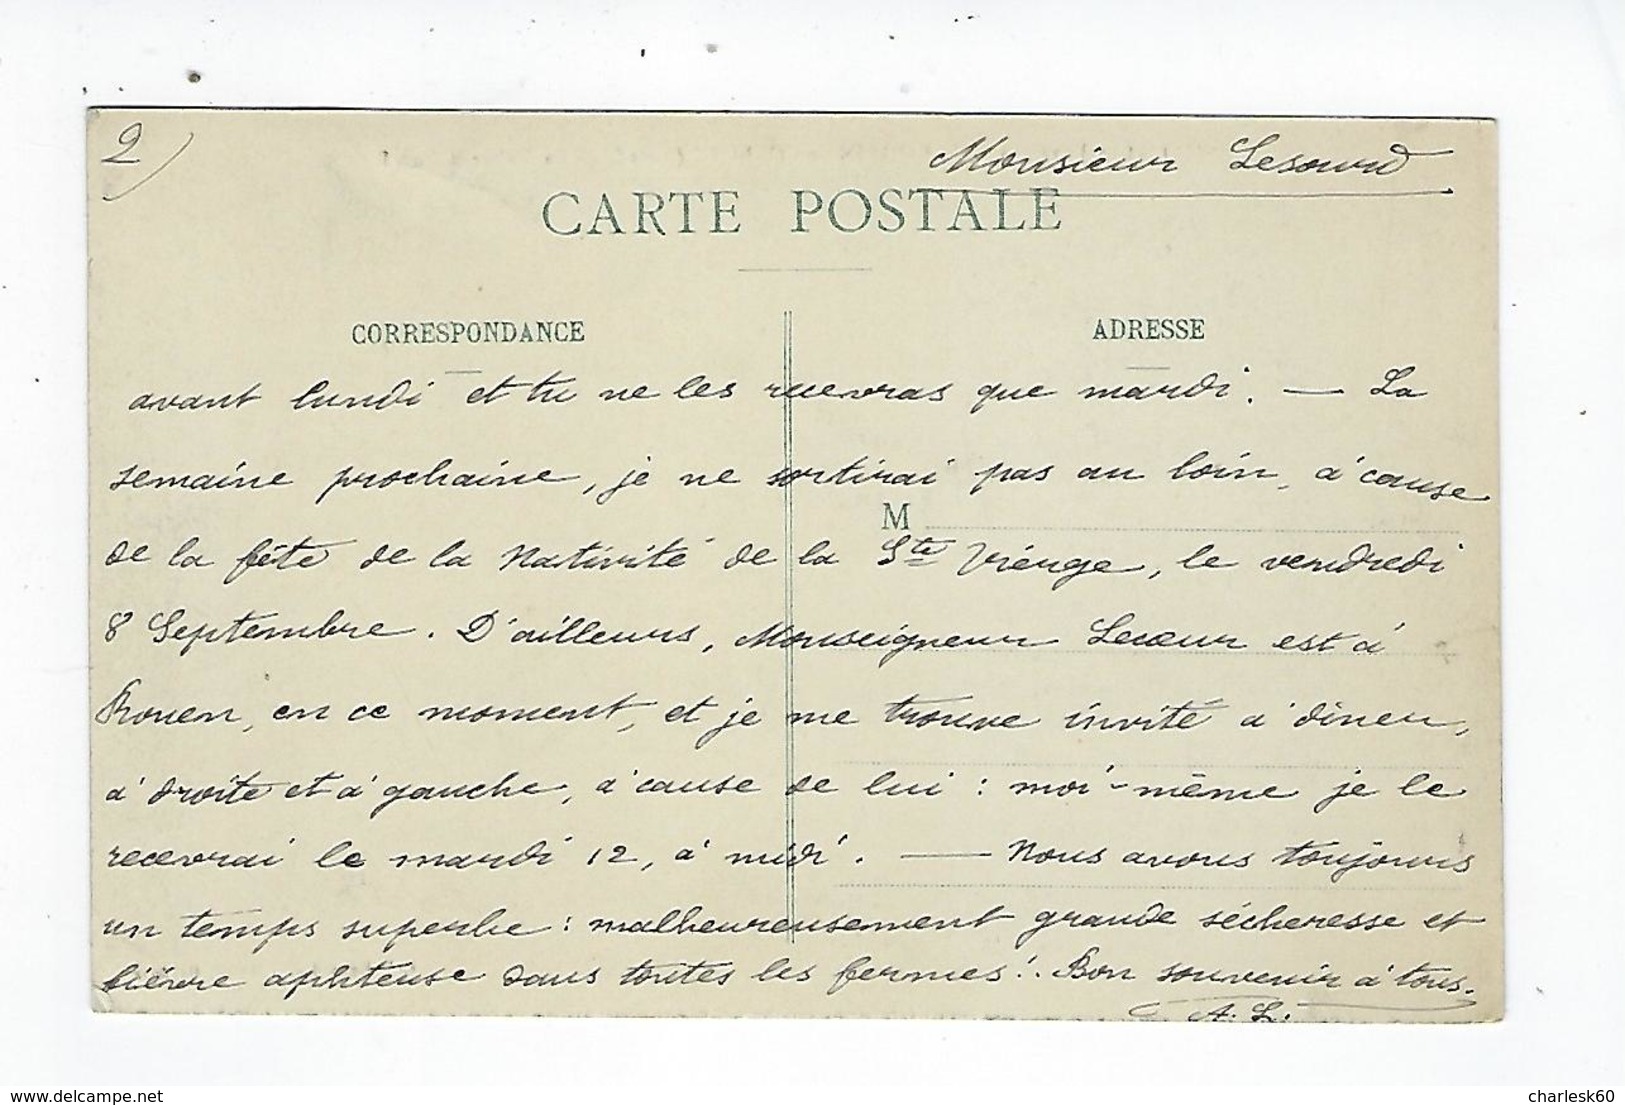 2)
Monsieur Lesourd
CARTE POSTALE
CORRESPONDANCE
ADRESSE
avant lundi et tu ne les recevras que mardi. — La
semaine prochaine, je ne sortirai pas au loin, à cause
M
de la fête de la Nativité de la Ste Vierge, le vendredi
8 Septembre. D'ailleurs, Monseigneur Lecœur est à
Rouen, en ce moment, et je me trouve invité à dîner,
à droite et à gauche, à cause de lui : moi-même je le
recevrai le mardi 12, à midi. — Nous avons toujours
un temps superbe : malheureusement grande sécheresse et
fièvre aphteuse dans toutes les fermes !. Bon souvenir à tous.
A. L.
charlesk60